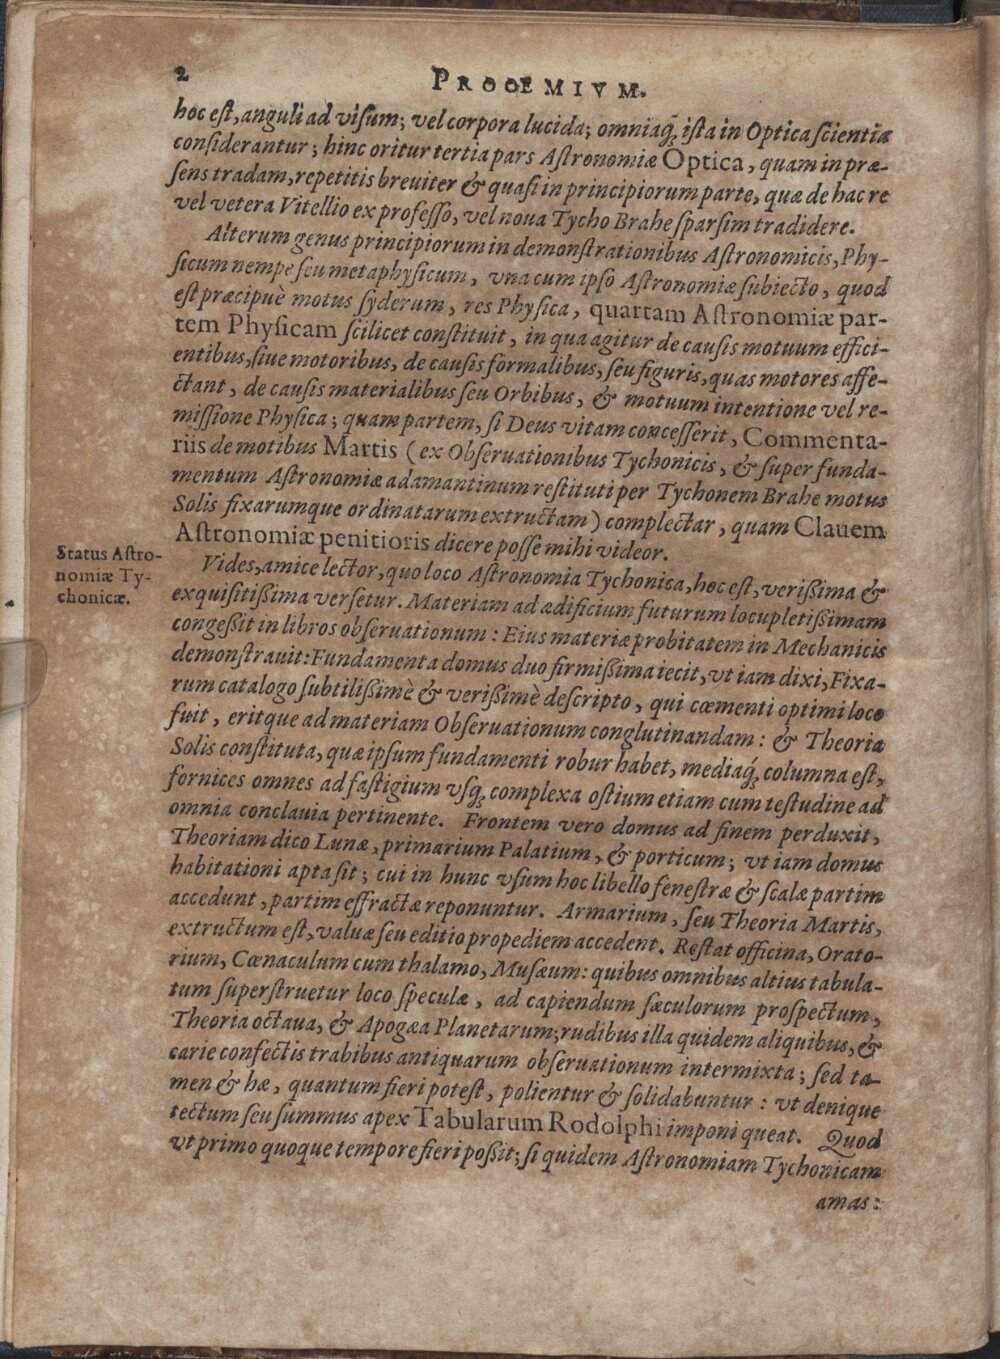 2
PROOEMIVM.
hoc eſt, anguli ad viſum; vel corpora lucida; omniaq́ꝫ iſta in Optica ſcientia
conſiderantur; hinc oritur tertia pars Aſtronomiæ Optica, quam in præ-
ſens tradam, repetitis breuiter & quaſi in principiorum parte, quæ de hac re
vel vetera Vitellio ex profeſſo, vel noua Tycho Brahe ſparſim tradidere.
Alterum genus principiorum in demonſtrationibus Aſtronomicis, Phy-
ſicum nempe ſeu metaphyſicum, vna cum ipſo Aſtronomiæ ſubiecto, quod
eſt præcipuè motus ſyderum, res Phyſica, quartam Aſtronomiæ par-
tem Phyſicam ſcilicet conſtituit, in qua agitur de cauſis motuum effici-
entibus, ſiue motoribus, de cauſis formalibus, ſeu figuris, quas motores affe-
ctant, de cauſis materialibus ſeu Orbibus, & motuum intentione vel re-
miſſione Phyſica; quam partem, ſi Deus vitam conceſſerit, Commenta-
riis de motibus Martis (ex Obſeruationibus Tychonicis, & ſuper funda-
mentum Aſtronomiæ adamantinum reſtituti per Tychonem Brahe motus
Solis fixarumque ordinatarum extructam) complectar, quam Clauem
Aſtronomiæ penitioris dicere poſſe mihi videor.
Status Aſtro-
nomiæ Ty-
chonicæ.
Vides, amice lector, quo loco Aſtronomia Tychonica, hoc eſt, veriſſima &
exquiſitißima verſetur. Materiam ad ædificium futurum locupletißimam
congeßit in libros obſeruationum: Eius materiæ probitatem in Mechanicis
demonſtrauit: Fundamenta domus duo firmißima iecit, vt iam dixi, Fixa-
rum catalogo ſubtilißimè & verißimè deſcripto, qui cœmenti optimi loco
fuit, eritque ad materiam Obſeruationum conglutinandam: & Theoria
Solis conſtituta, quæ ipſum fundamenti robur habet, mediaq́ꝫ columna eſt,
fornices omnes ad faſtigium vſqꝫ complexa oſtium etiam cum teſtudine ad
omnia conclauia pertinente. Frontem vero domus ad finem perduxit,
Theoriam dico Lunæ, primarium Palatium, & porticum; vt iam domus
habitationi apta ſit; cui in hunc vſum hoc libello feneſtræ & ſcalæ partim
accedunt, partim effractæ reponuntur. Armarium, ſeu Theoria Martis,
extructum eſt, valuæ ſeu editio propediem accedent. Reſtat officina, Orato-
rium, Cœnaculum cum thalamo, Muſæum: quibus omnibus altius tabula-
tum ſuperſtruetur loco ſpeculæ, ad capiendum ſæculorum proſpectum,
Theoria octaua, & Apogæa Planetarum; rudibus illa quidem aliquibus, &
carie confectis trabibus antiquarum obſeruationum intermixta; ſed ta-
men & hæ, quantum fieri poteſt, polientur & ſolidabuntur: vt denique
tectum ſeu ſummus apex Tabularum Rodolphi imponi queat. Quod
vt primo quoque tempore fieri poßit; ſi quidem Aſtronomiam Tychonicam
amas: